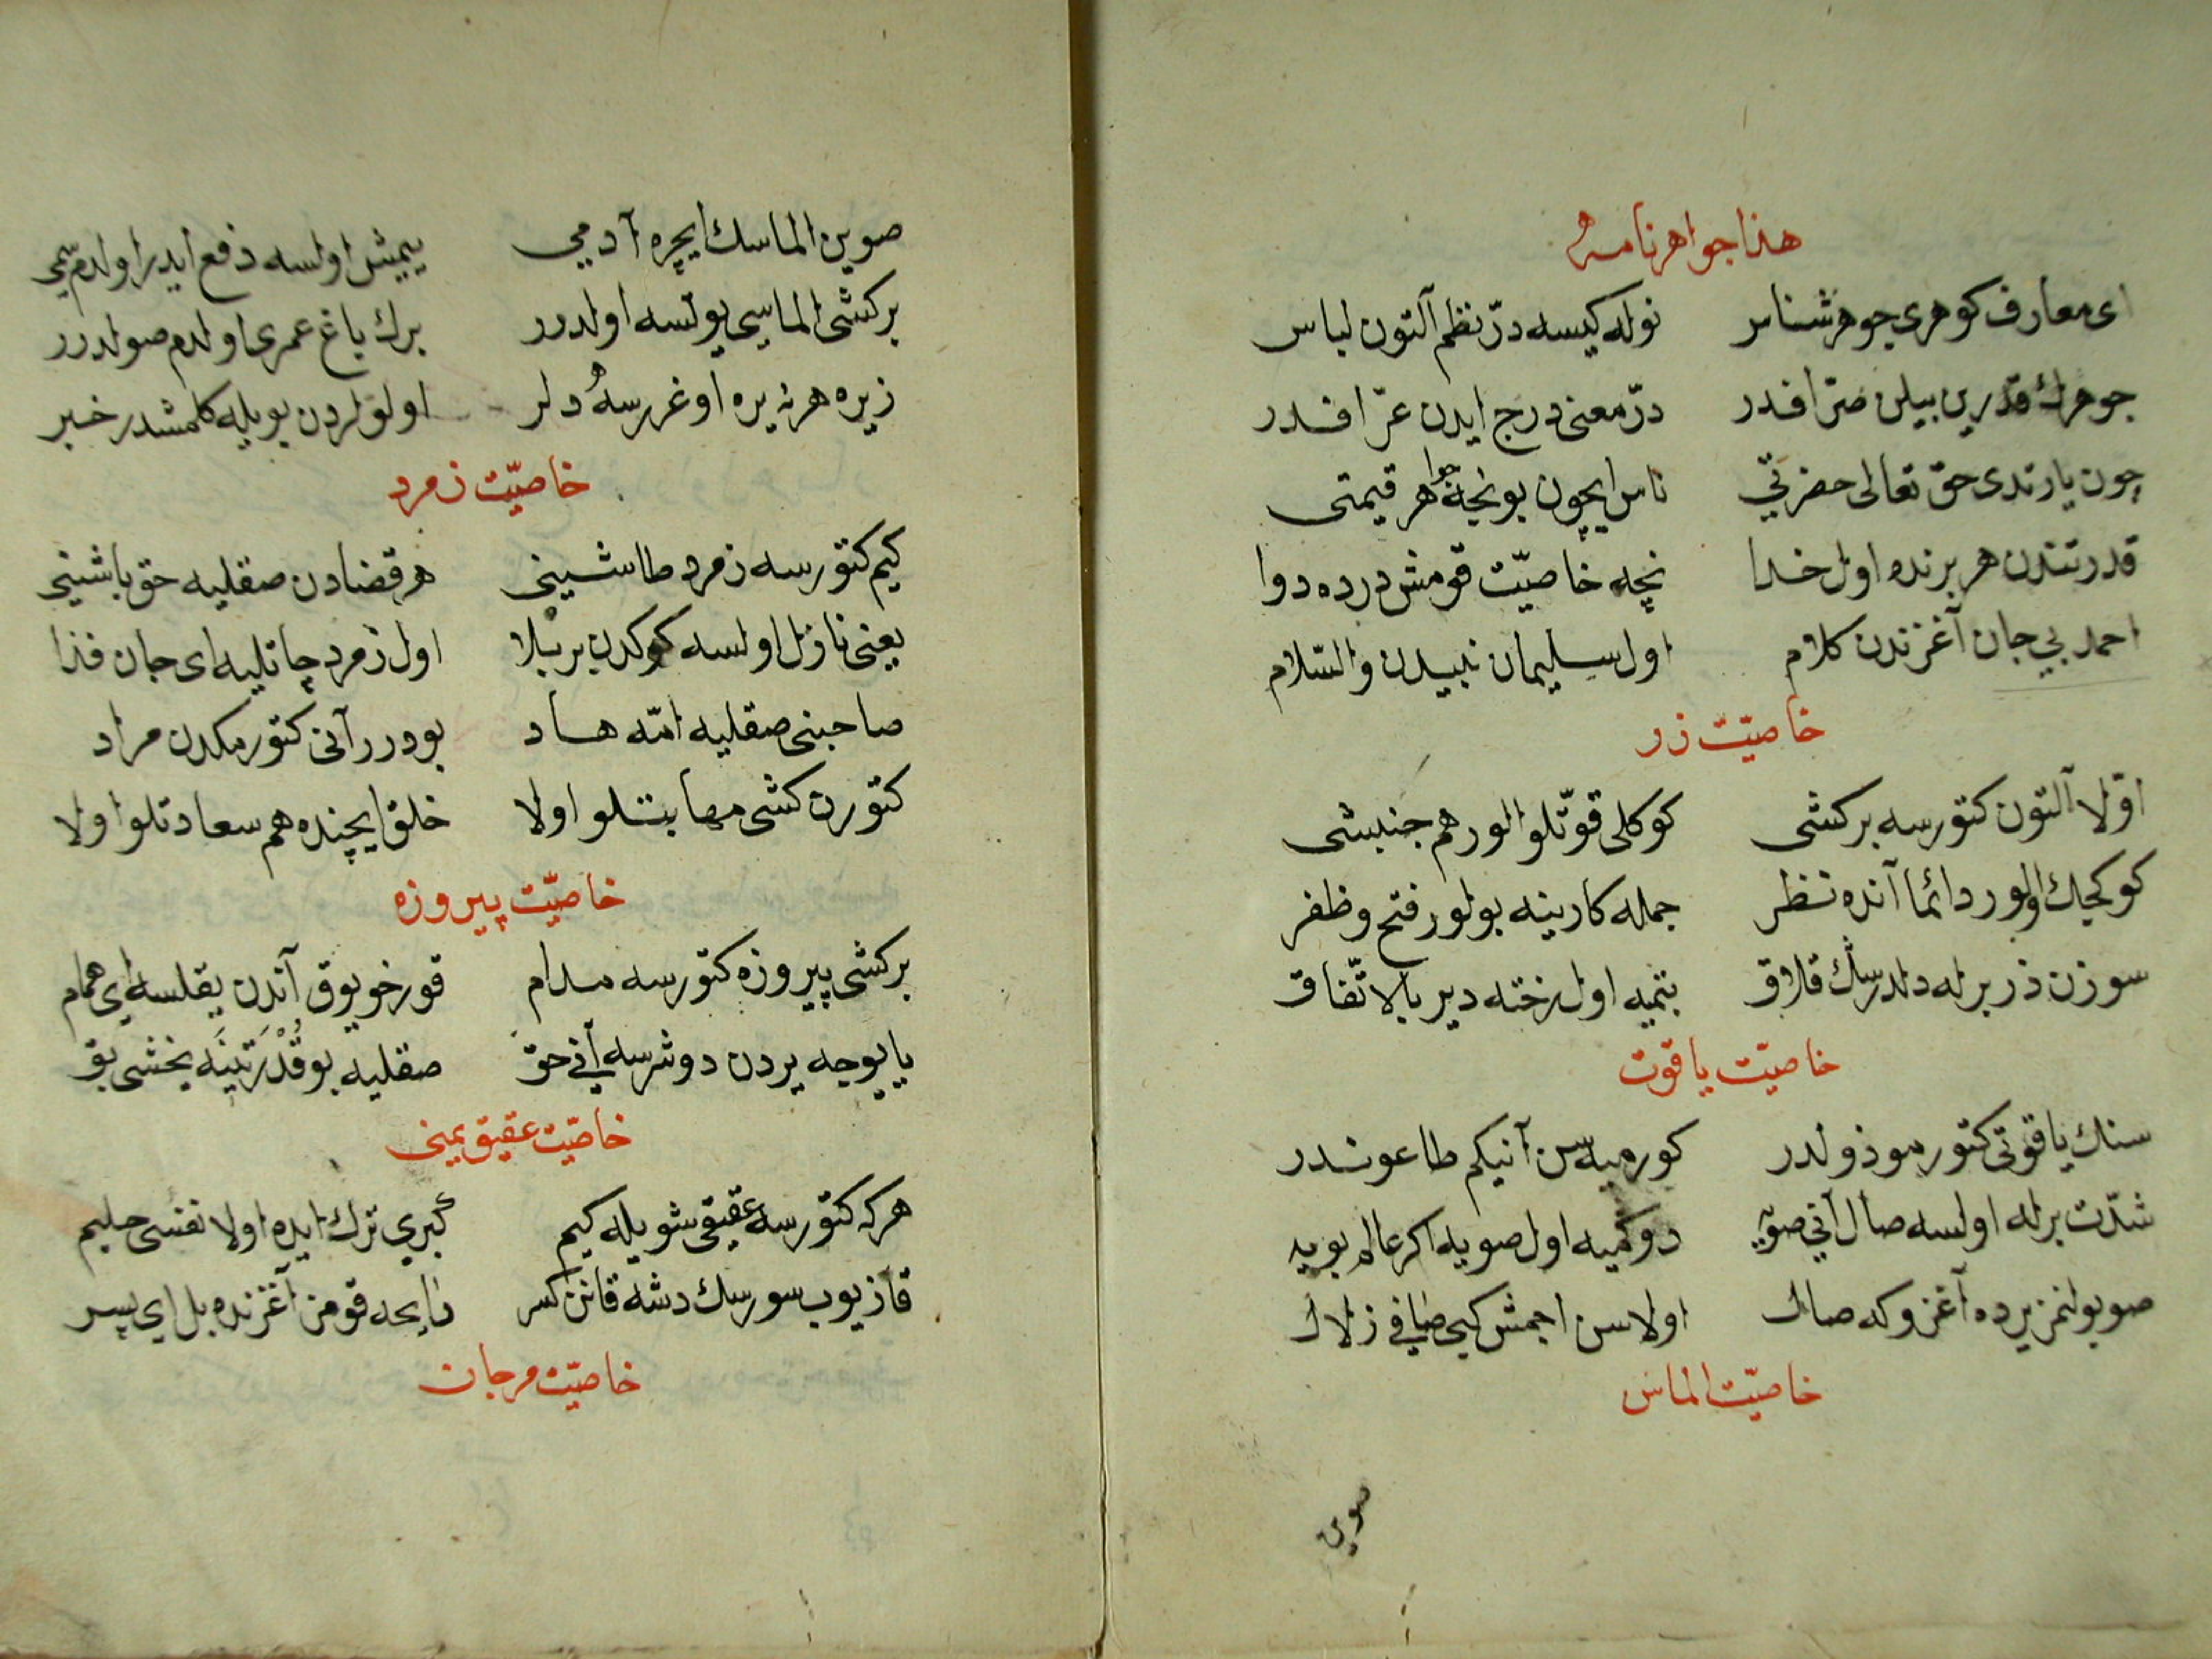 هذا جواهرنامه
ای معارف کوهری جوهرشناس نوله کیسه درّ نظم آلتون لباس
جوهرك قدرین بیلن صرّافدر درّ معنی درج ایدن عرّافدر
چون یارتدی حق تعالی حضرتی ناس ایچون بونجه جواهر قیمتی
قدرتندن هر برنده اول خدا نچه خاصیّت قومش درده دوا
احمد بی جان آغزندن کلام اول سلیمان نبیدن والسّلام
خاصیّت زر
اوّلا آلتون کتورسه بر کشی کوکلی قوّتلو الور هم جنبشی
کوکچك اولور دائما آنده نظر جمله کارینه بولور فتح و ظفر
سوزن زر برله دلدرسك قلاق بتمیه اول رخته دیر بالاتّفاق
خاصیّت یاقوت
سنك یاقوتی کتور موذولدر کورمیه سن آنیکم طاعوندر
شدّت برله اولسه صال آنی صویه دوکمیه اول صویه اکر عالم بویه
صو بولنمز یرده آغزوکه صال اولاسن اجمش کبی صافی زلال
خاصیّت الماس
صوین
صوین الماسك ایچره آدمی ییمیش اولسه دفع ایدر اولدم سمی
بر کشی الماسی یوتسه اولدرر برك باغ عمری اولدم صولدرر
زیره هر نه یره اوغررسه دلر اولولردن بویله کلمشدر خبر
خاصیّت زمرد
کیم کتورسه زمرد طاشینی هر قضادن صقلیه حق باشینی
یعنی نازل اولسه کوکدن بر بلا اول زمرد چاتلیه ای جان فدا
صاحبنی صقلیه امّه هاد بودرر آنی کتورمکدن مراد
کتورن کشی مهابتلو اولا خلق ایچنده هم سعادتلو اولا
خاصیّت پیروزه
بر کشی پیروزه کتورسه مدام قورخو یوق آندن یقلسه ای همام
یا یوجه یردن دوشرسه آنی حق صقلیه بو قُدْرَتِینَه یخشی بق
خاصیّت عقیق یمینی
هر که کتورسه عقیقی شویله کیم کبری ترك ایده اولا نفسی حلیم
قازیوب سورسك دشه قانن کسر رایحه قومز آغزنده بل ای پسر
خاصیّت مرجان